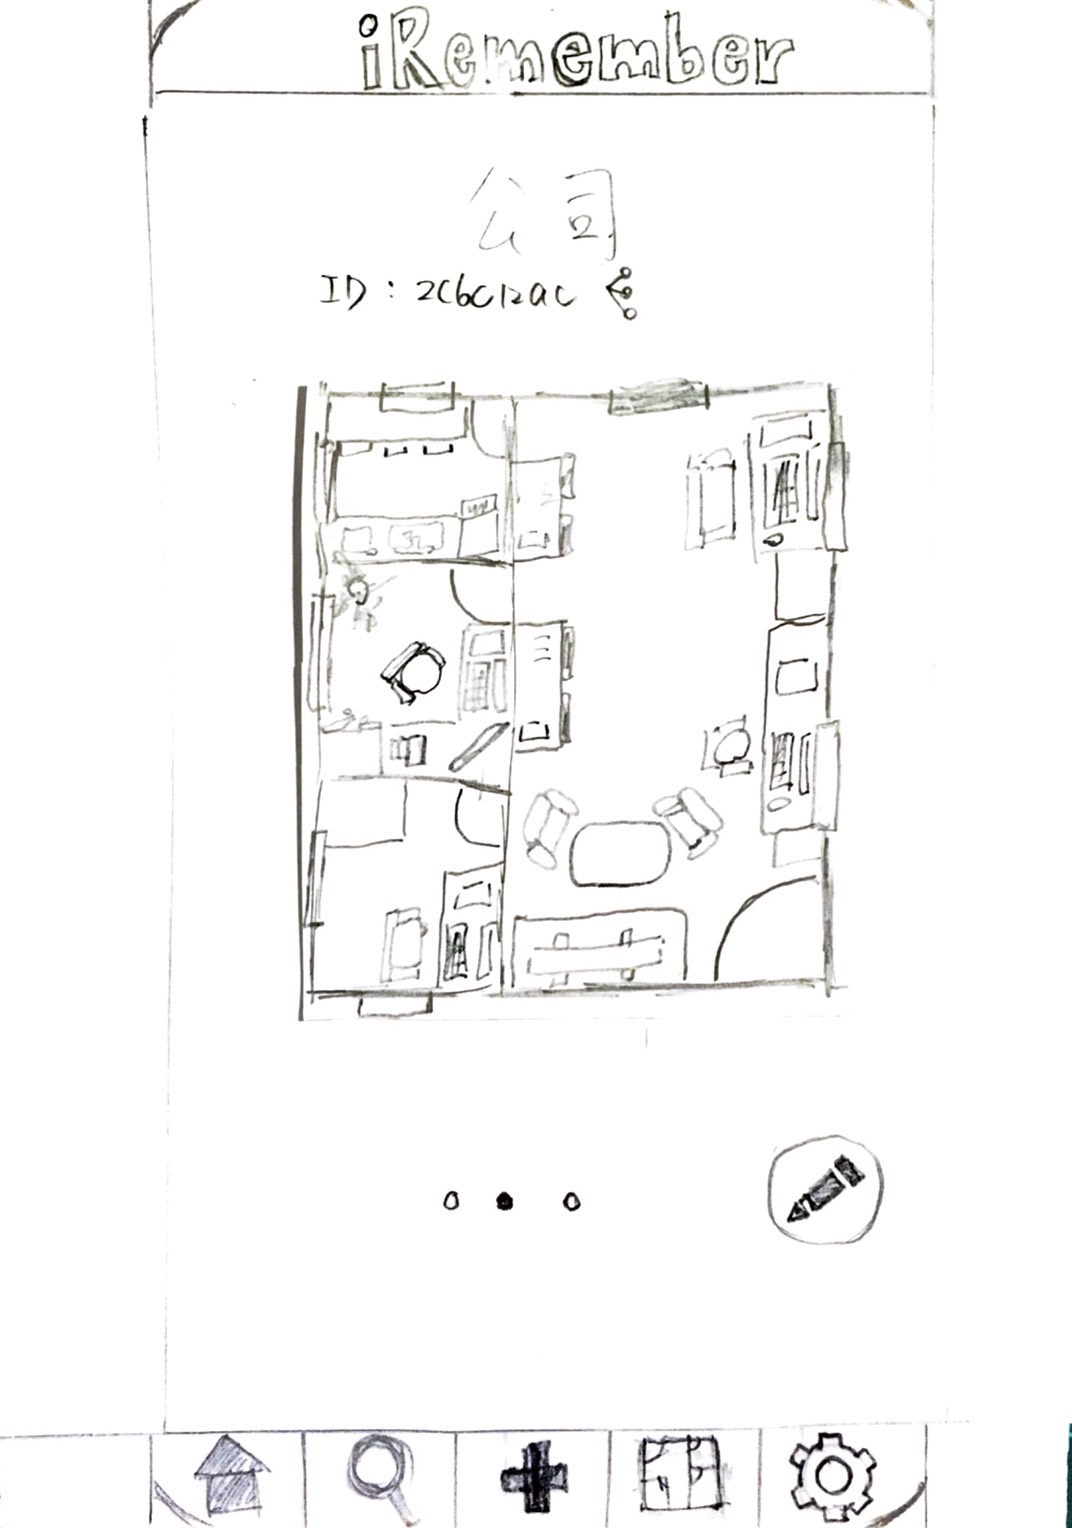 iRemember
公司
ID : 2C6C12aC